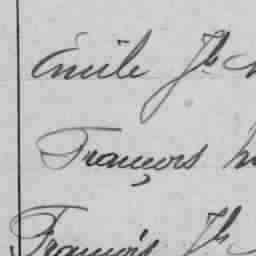 Emile Jh
François
François Jh